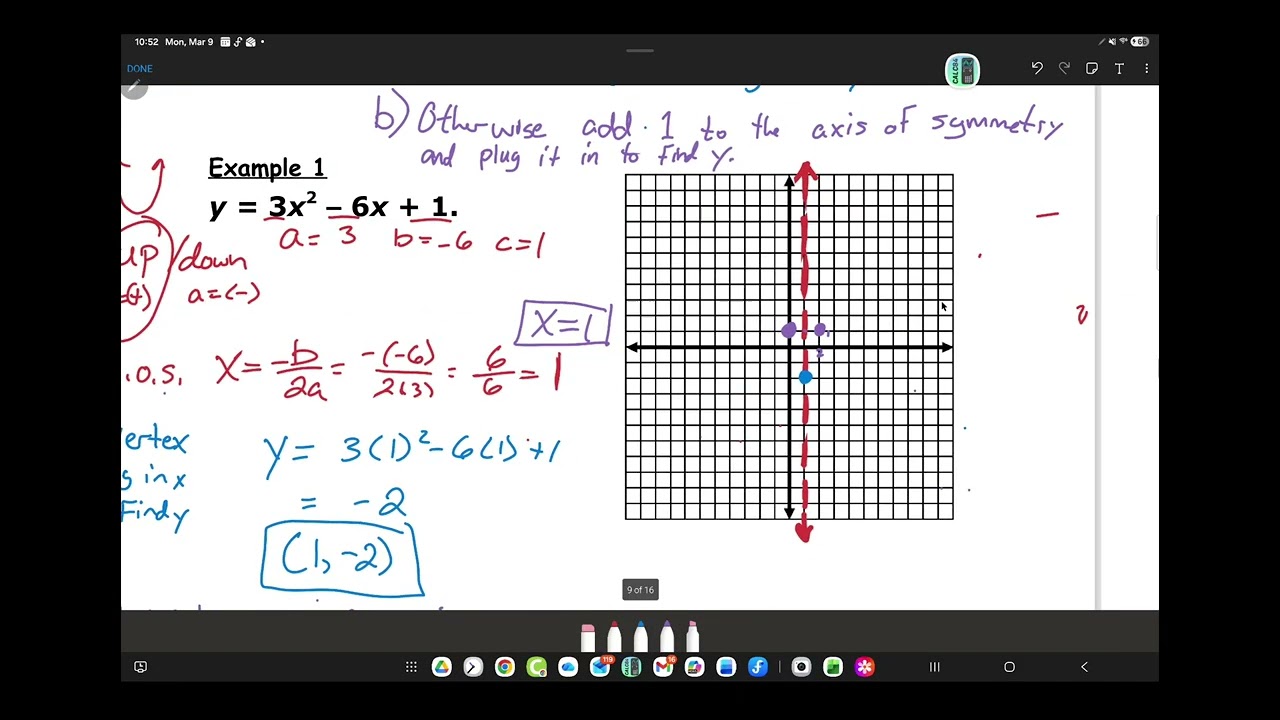 10:52 Mon, Mar 9
66
DONE
CALC84
T
b) Otherwise add 1 to the axis of symmetry
and plug it in to find y.
Example 1
y = 3x² – 6x + 1.
a = 3 b = -6 c = 1
UP / down
=(+) a = (-)
X = 1
.O.S. X = -b/2a = -(-6)/2(3) = 6/6 = 1
ertex
y = 3(1)² - 6(1) + 1
g in x
Find y
= -2
(1, -2)
9 of 16
119
16